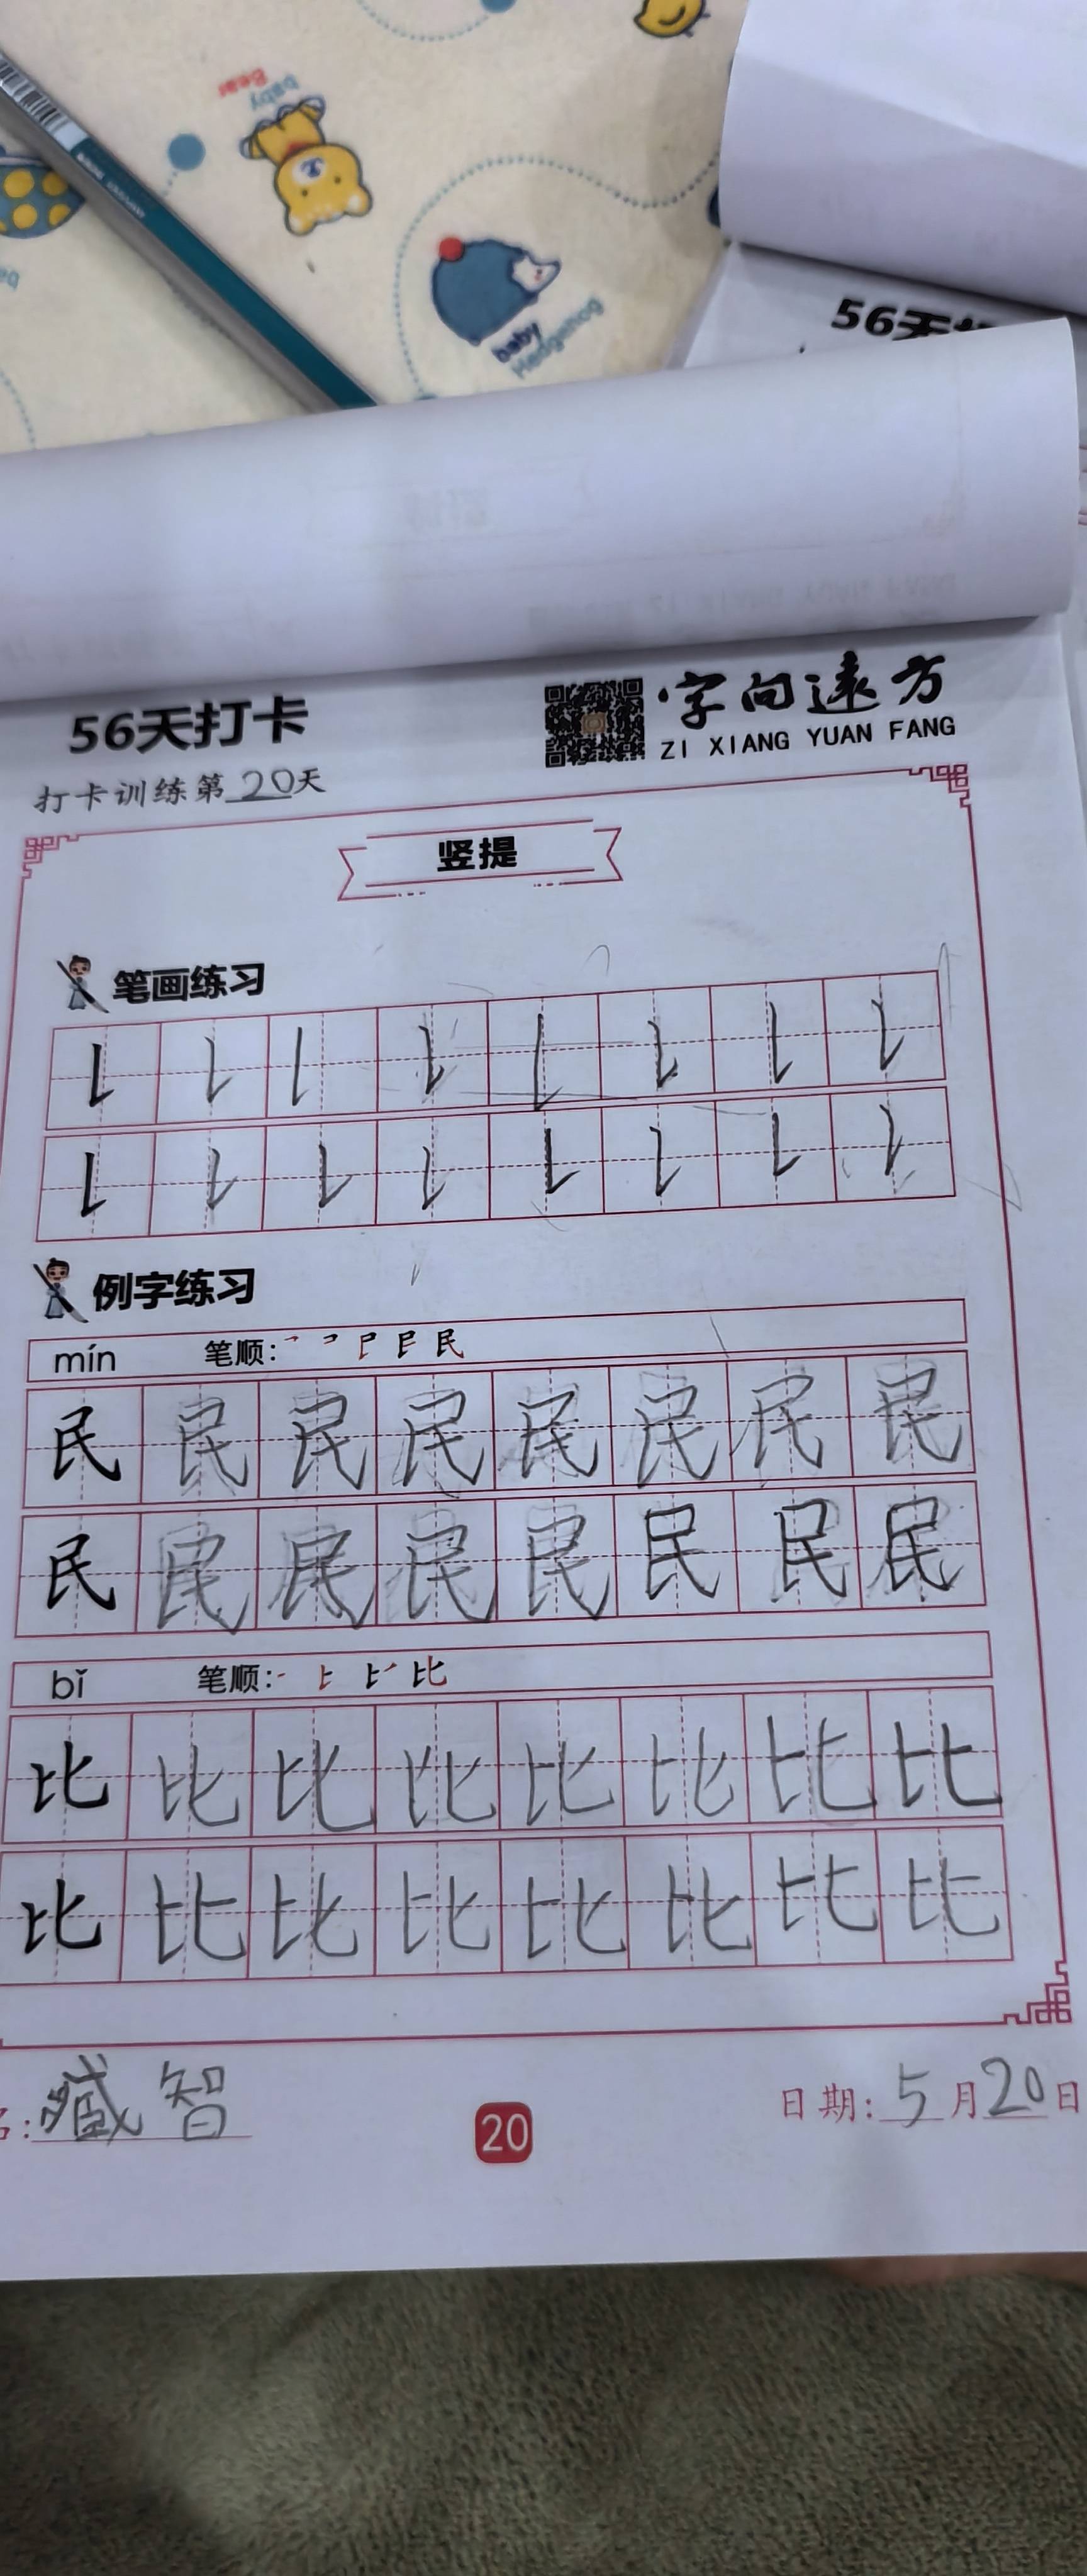 baby
Bear
baby
Hedgehog
56天打卡
字向远方
ZI XIANG YUAN FANG
打卡训练第20天
竖提
笔画练习
例字练习
mín 笔顺:
民 民 民 民 民 民 民 民
民 民 民 民 民 民 民 民
bǐ 笔顺:
比 比 比 比 比 比 比 比
比 比 比 比 比 比 比 比
名: 臧智
20
日期: 5月20日